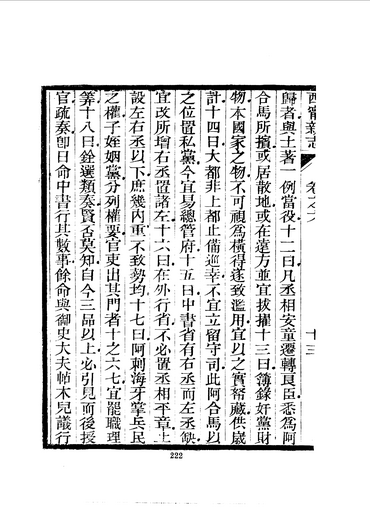 西甯新志 卷之六 十三
歸者與土著一例當役十二曰凡丞相安童遷轉良臣悉爲阿
合馬所擯或居散地或在遠方並宜拔擢十三曰簿錄奸黨財
物本國家之物不可視爲橫得遂致濫用宜以之實帑藏供歲
計十四曰大都非上都止備巡幸不宜立留守司此阿合馬以
之位置私黨今宜易總管府十五曰中書省有右丞而左丞缺
宜改所增右丞置諸左十六曰在外行省不必置丞相平章止
設左右丞以下庶幾內重不致勢均十七曰阿剌海牙掌兵民
之權子姪姻黨分列權要官吏出其門者十之六七宜罷職理
筭十八曰銓選類奏賢否莫知自今三品以上必引見而後授
官疏奏卽日命中書行其數事餘命與御史大夫帖木兒議行
222